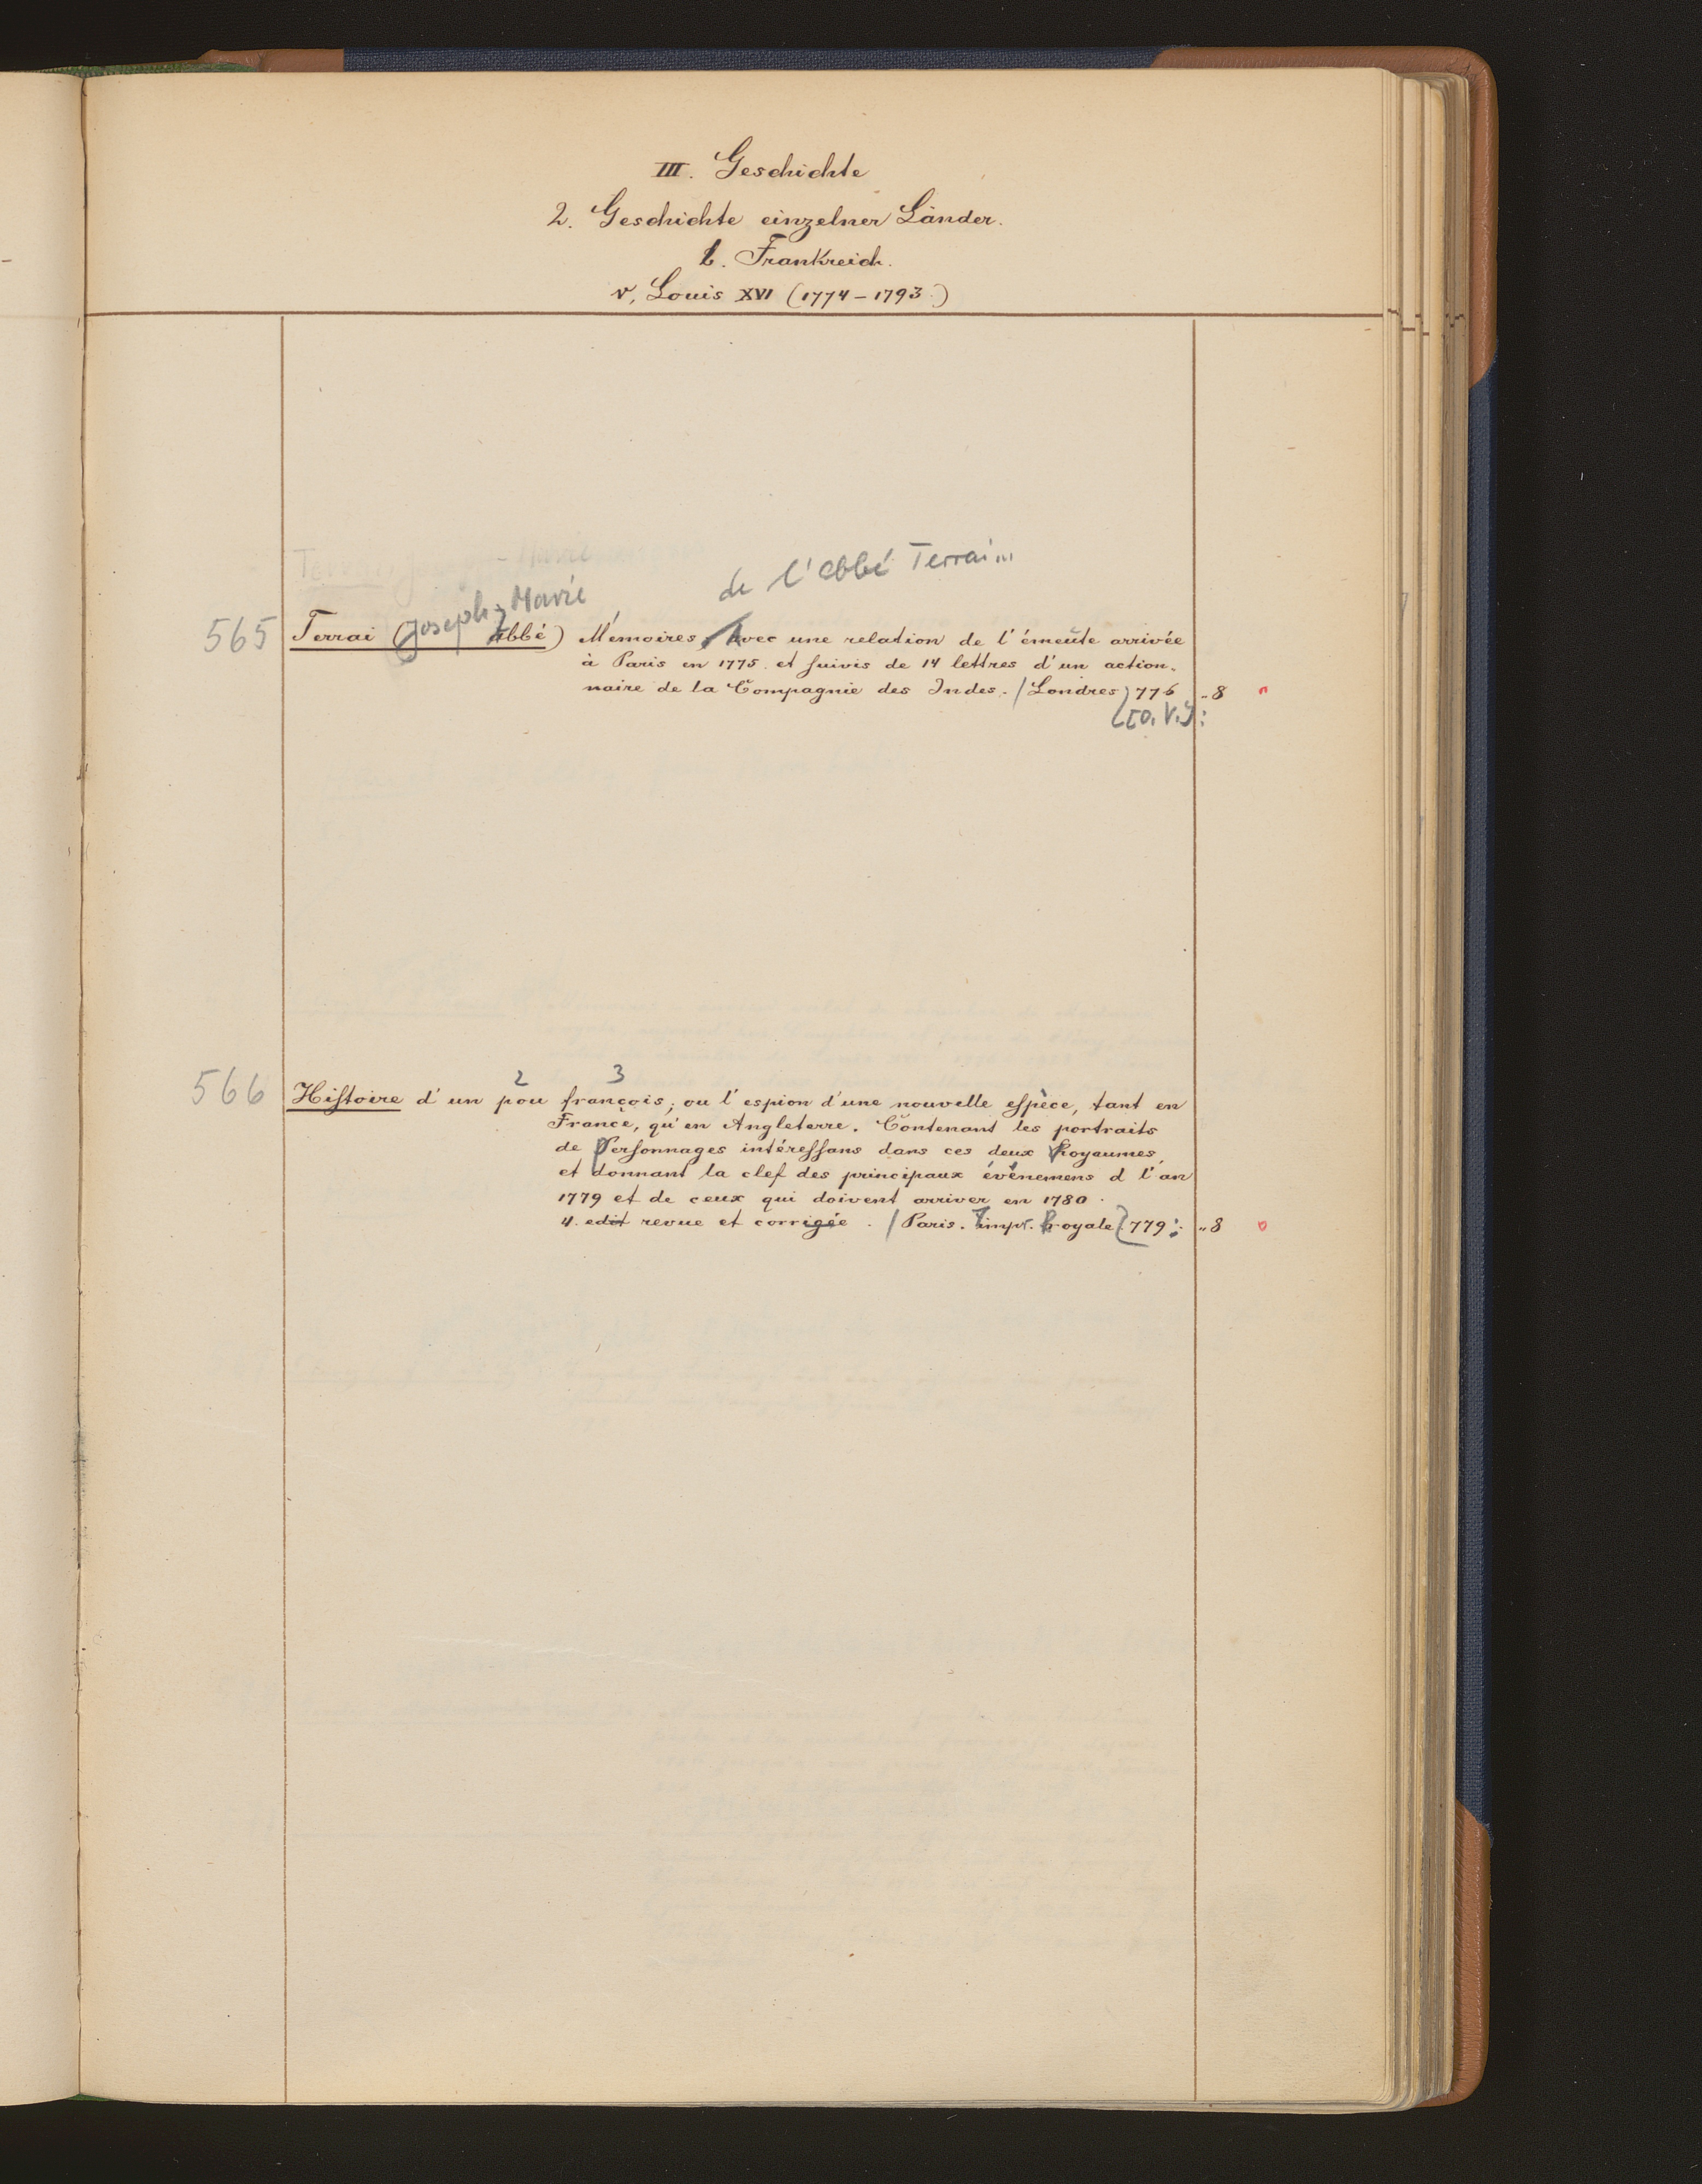 III. Geschichte
2. Geschichte einzelner Länder.
b. Frankreich.
v, Louis XVI (1774-1793)
de l'abbé Terrai...
Joseph-Marie
565 Terrai (abbé) Mémoires, avec une relation de l'émeute arrivée
à Paris en 1775. et suivis de 14 lettres d'un action-
naire de la Compagnie des Indes. / Londres 776 -8
[O.V.]:
2 3
566 Histoire d'un pou françois; ou l'espion d'une nouvelle espèce, tant en
France, qu'en Angleterre. Contenant les portraits
de personnages intéressans dans ces deux Royaumes,
et donnant la clef des principaux événemens d l'an
1779 et de ceux qui doivent arriver en 1780.
4. edit revue et corrigée. / Paris. impr. royale 779: -8